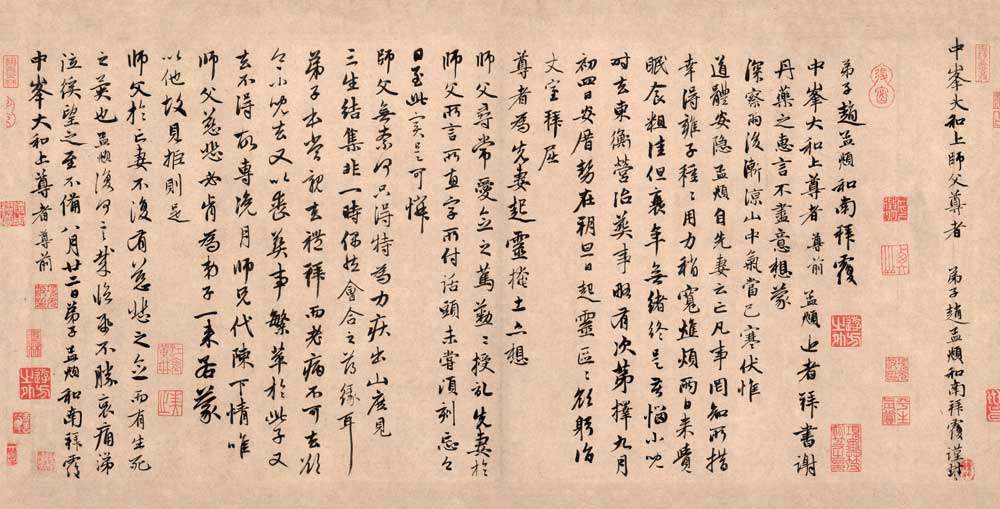 中峯大和上師父尊者 弟子趙孟頫和南拜覆謹封
弟子趙孟頫和南拜覆
中峯大和上尊者 尊前 孟頫近者拜書謝
丹藥之惠言不盡意想蒙
深察雨後漸涼山中氣當已寒伏惟
道體安隱孟頫自先妻云亡凡事罔知所措
幸得雍子種種用力稍寬焦煩兩日來
眠食粗佳但衰年無緒終是苦惱小兒
時去東衡營治葬事略有次第擇九月
初四日安厝勢在朔旦日起靈區〻欲躬詣
丈室拜屈
尊者為先妻起靈掩土亦想
師父尋常愛念之篤懃〻授記先妻於
師父所言所直字所付話頭未嘗頃刻忘之
日至此實是可憐
師父無奈何只得特為力疾出山庶見
三生結集非一時偶然會合之為緣耳
弟子本當親去禮拜而老病不可去欲
令小兒去又以喪葬事繁萃於此子又
去不得所專浼月師兄代陳下情唯
師父慈悲必肯為弟子一來若蒙
以他故見拒則是
師父於亡妻不復有慈悲之念而有生死
之異也孟頫復何言哉臨紙不勝哀痛涕
泣徯望之至不備八月廿二日弟子孟頫和南拜覆
中峯大和上尊者 尊前